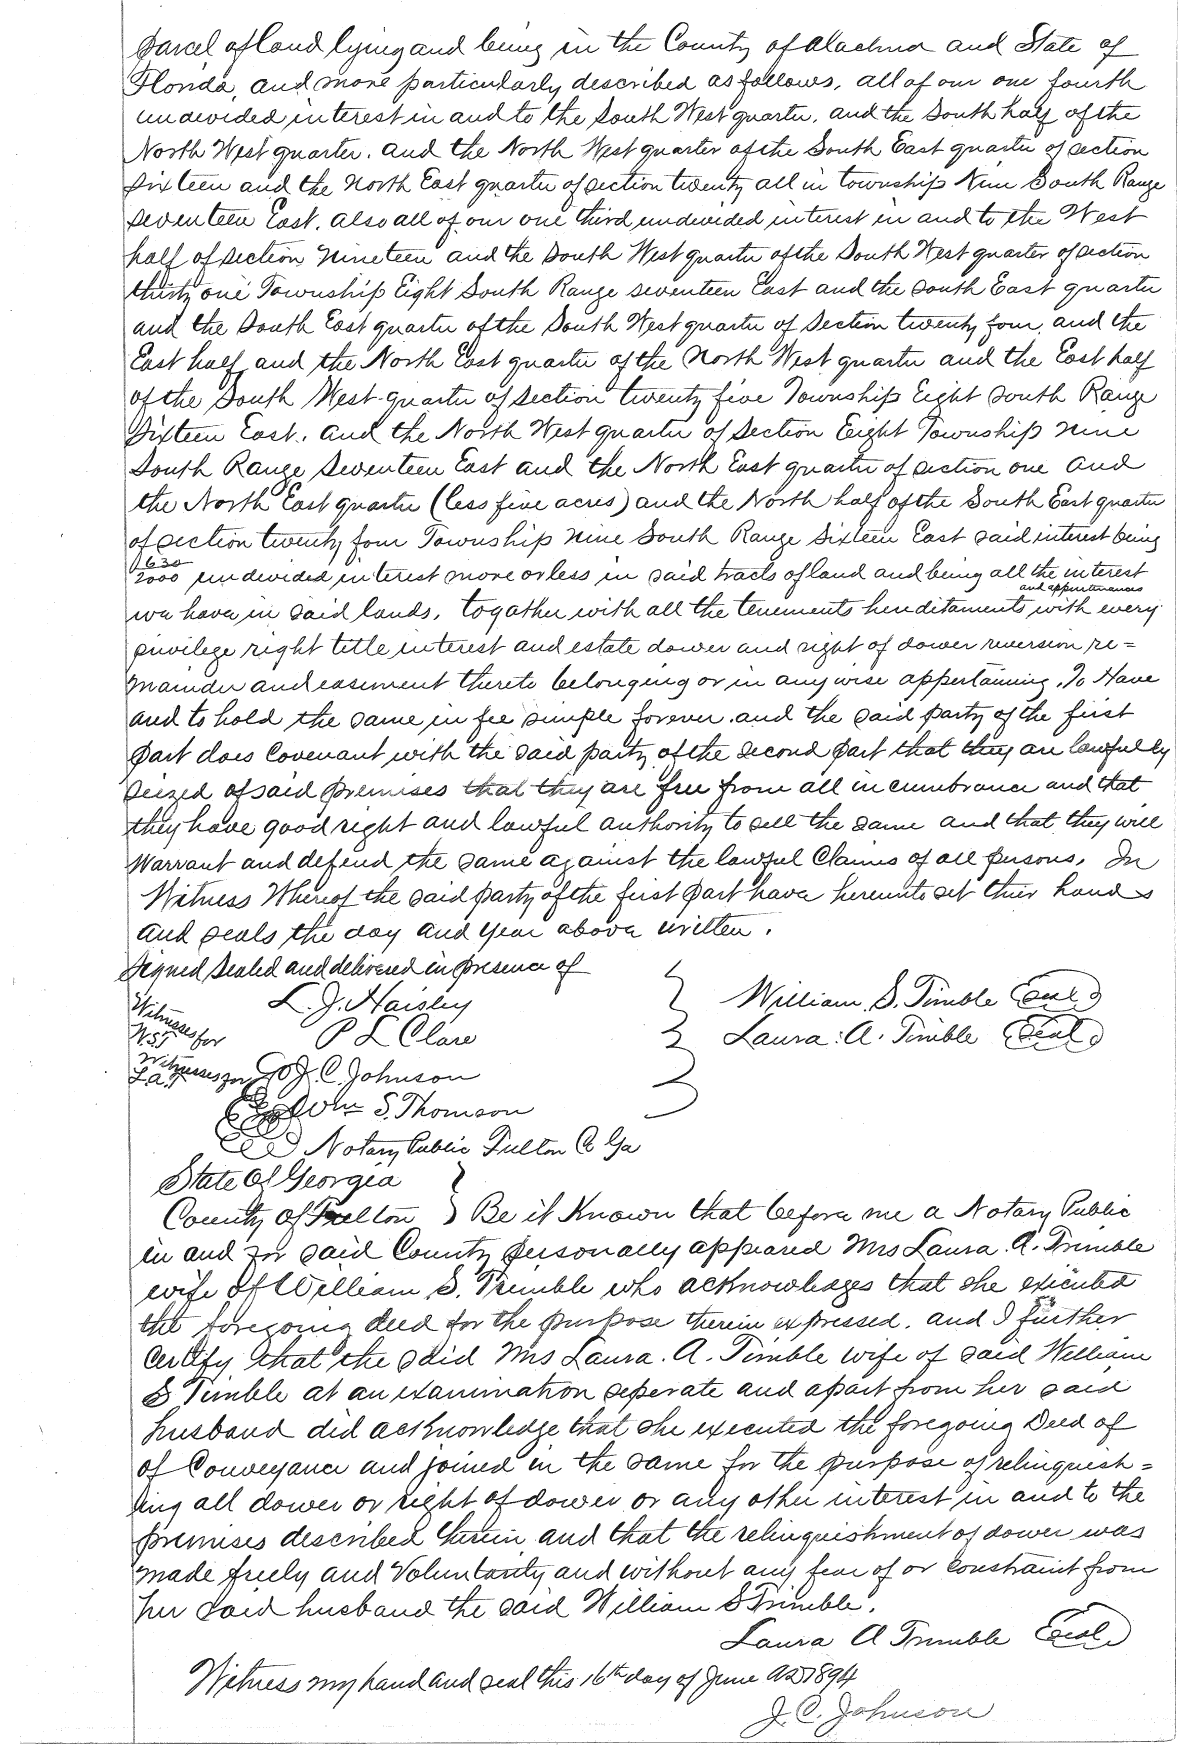 parcel of land lying and being in the County of Alachua and State of
Florida, and more particularly described as follows, all of our one fourth
undevided interest in and to the South West quarter, and the South half of the
North West quarter. and the North West quarter of the South East quarter of section
sixteen and the North East quarter of section twenty all in township Nine South Range
seventeen East. also all of our one third undevided interest in and to the West
half of section nineteen and the South West quarter of the South West quarter of section
thirty one Township Eight South Range seventeen East and the South East quarter
and the South East quarter of the South West quarter of Section twenty four, and the
East half and the North East quarter of the North West quarter and the East half
of the South West quarter of section twenty five Township Eight South Range
Sixteen East. and the North West quarter of Section Eight Township nine
South Range Seventeen East and the North East quarter of section one and
the North East quarter (less five acres) and the North half of the South East quarter
of section twenty four Township nine South Range Sixteen East said interest being
630/2000 undevided interest more or less in said tracts of land and being all the interest
and appurtenances
we have in said lands, togather with all the tenements herditaments with every
privilege right title interest and estate dower and right of dower reversion re=
mainder and easement thereto belonging or in any wise appertaining. To Have
and to hold the same in fee simple forever. and the said party of the first
part does covenant with the said party of the second part that they are lawfully
seized of said premises that they are free from all incumbrance and that
they have good right and lawful authority to sell the same and that they will
Warrant and defend the same against the lawful Claims of all persons, In
Witness Whereof the said party of the first part have hereunto set thier hands
and seals the day and year above written.
Signed Sealed and delivered in presence of
L. J. Haisley William. S. Timble Seal
Witnesses for W.S.T P L Clare Laura. A. Timble Seal
Witnesses for L.A.T J. C. Johnson
Wm S. Thomson
Notary Public Fulton Co Ga
State of Georgia
County of Fulton } Be it Known that before me a Notary Public
in and for said County personally appeared Mrs Laura. A. Trimble
wife of William S. Trimble who acknowledges that she executed
the foregoing deed for the purpose therein expressed. and I further
certify that the said Mrs Laura. A. Timble wife of said William
S Timble at an examination seperate and apart from her said
husband did acknowledge that she executed the foregoing Deed of
of Conveyance and joined in the same for the purpose of relinquish=
ing all dower or right of dower or any other interest in and to the
premises described herein and that the relinquishment of dower was
made freely and Voluntarily and without any fear of or constraint from
her said husband the said William S Trimble.
Laura A Trimble Seal
Witness my hand and seal this 16th day of June AD 1894
J. C. Johnson